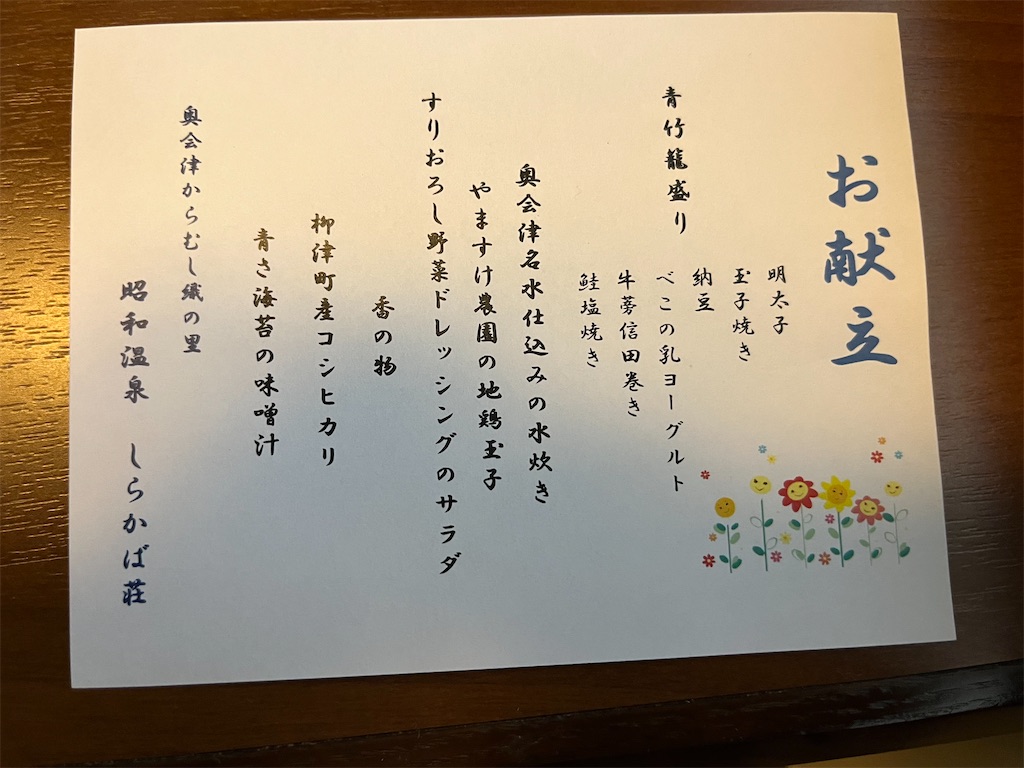 お献立
明太子
玉子焼き
納豆
青竹籠盛り
べこの乳ヨーグルト
牛蒡信田巻き
鮭塩焼き
奥会津名水仕込みの水炊き
やますけ農園の地鶏玉子
すりおろし野菜ドレッシングのサラダ
香の物
柳津町産コシヒカリ
青さ海苔の味噌汁
奥会津からむし織の里
昭和温泉 しらかば荘